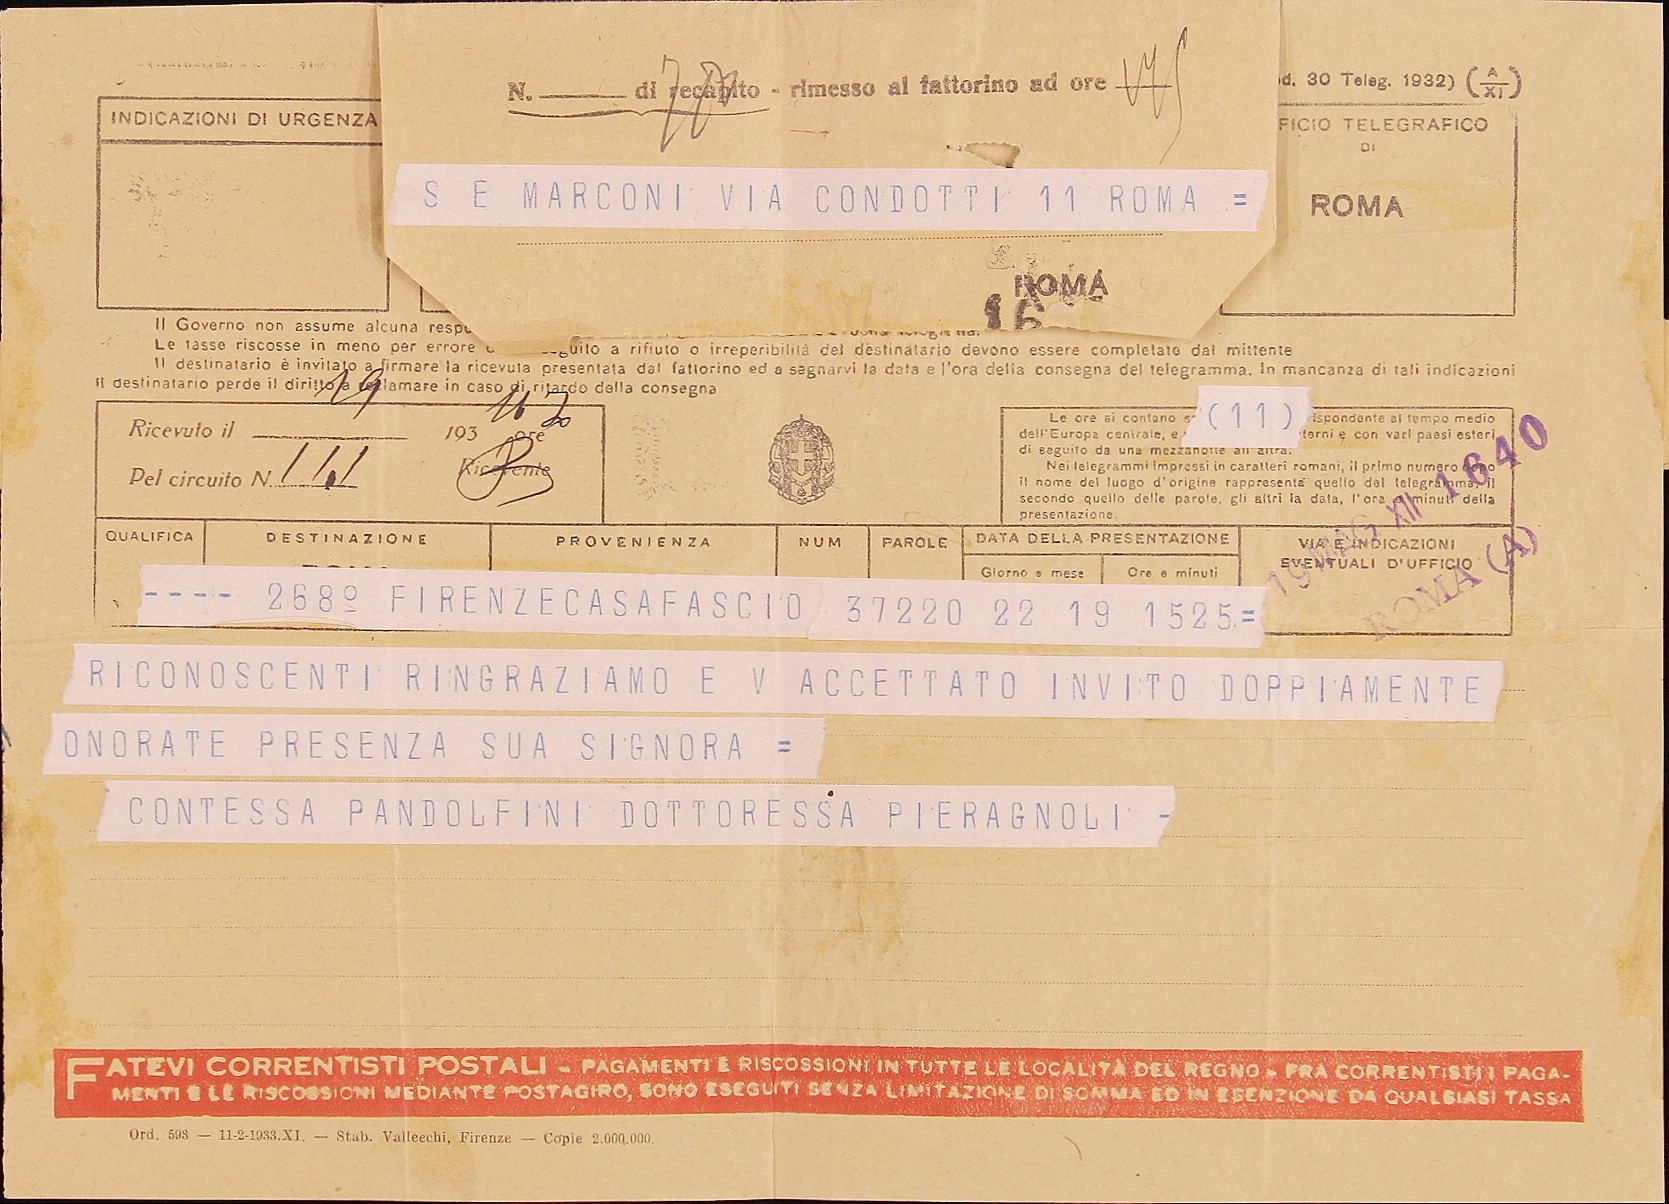 N. di recapito - rimesso al fattorino ad ore
d. 30 Teleg. 1932) (A/XI)
INDICAZIONI DI URGENZA
FICIO TELEGRAFICO
DI
ROMA
S E MARCONI VIA CONDOTTI 11 ROMA =
ROMA
16
Il Governo non assume alcuna respo
Le tasse riscosse in meno per errore o seguito a rifiuto o irreperibilità del destinatario devono essere completate dal mittente
Il destinatario è invitato a firmare la ricevuta presentata dal fattorino ed a segnarvi la data e l'ora della consegna del telegramma. In mancanza di tali indicazioni
il destinatario perde il diritto a reclamare in caso di ritardo della consegna
Ricevuto il 19 193 ore 16 30
Pel circuito N. 111 Ricevente
Le ore si contano s (11) rispondente al tempo medio
dell'Europa centrale, e terni e con vari paesi esteri
di seguito da una mezzanotte all'altra.
Nei telegrammi impressi in caratteri romani, il primo numero dopo
il nome del luogo d'origine rappresenta quello del telegramma, il
secondo quello delle parole, gli altri la data, l'ora e minuti della
presentazione.
19 MAG. XII 1640
ROMA (A)
QUALIFICA DESTINAZIONE PROVENIENZA NUM PAROLE DATA DELLA PRESENTAZIONE VIA E INDICAZIONI
Giorno e mese Ore e minuti EVENTUALI D'UFFICIO
---- 268º FIRENZECASAFASCIO 37220 22 19 1525=
RICONOSCENTI RINGRAZIAMO E V ACCETTATO INVITO DOPPIAMENTE
ONORATE PRESENZA SUA SIGNORA =
CONTESSA PANDOLFINI DOTTORESSA PIERAGNOLI -
FATEVI CORRENTISTI POSTALI - PAGAMENTI E RISCOSSIONI IN TUTTE LE LOCALITÀ DEL REGNO - FRA CORRENTISTI I PAGA-
MENTI E LE RISCOSSIONI MEDIANTE POSTAGIRO, SONO ESEGUITI SENZA LIMITAZIONE DI SOMMA ED IN ESENZIONE DA QUALSIASI TASSA
Ord. 593 — 11-2-1933.XI. — Stab. Vallecchi, Firenze — Copie 2.000.000.